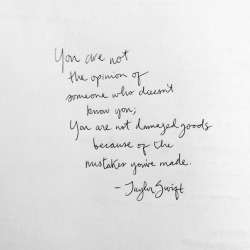 You are not
the opinion of
someone who doesn't
know you;
You are not damaged goods
because of the
mistakes you've made.
- Taylor Swift